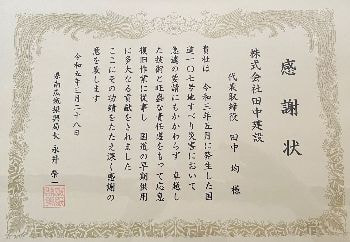 感謝状
株式会社田中建設
代表取締役 田中 均 様
貴社は 令和二年五月に発生した国
道一〇七号地すべり災害において
急遽の要請にもかかわらず 卓越し
た技術と旺盛な責任感をもって応急
復旧作業に従事し 国道の早期供用
に多大なる貢献をされました
ここにその功績をたたえ深く感謝の
意を表します
令和五年三月二十八日
県南広域振興局長 永井 榮一